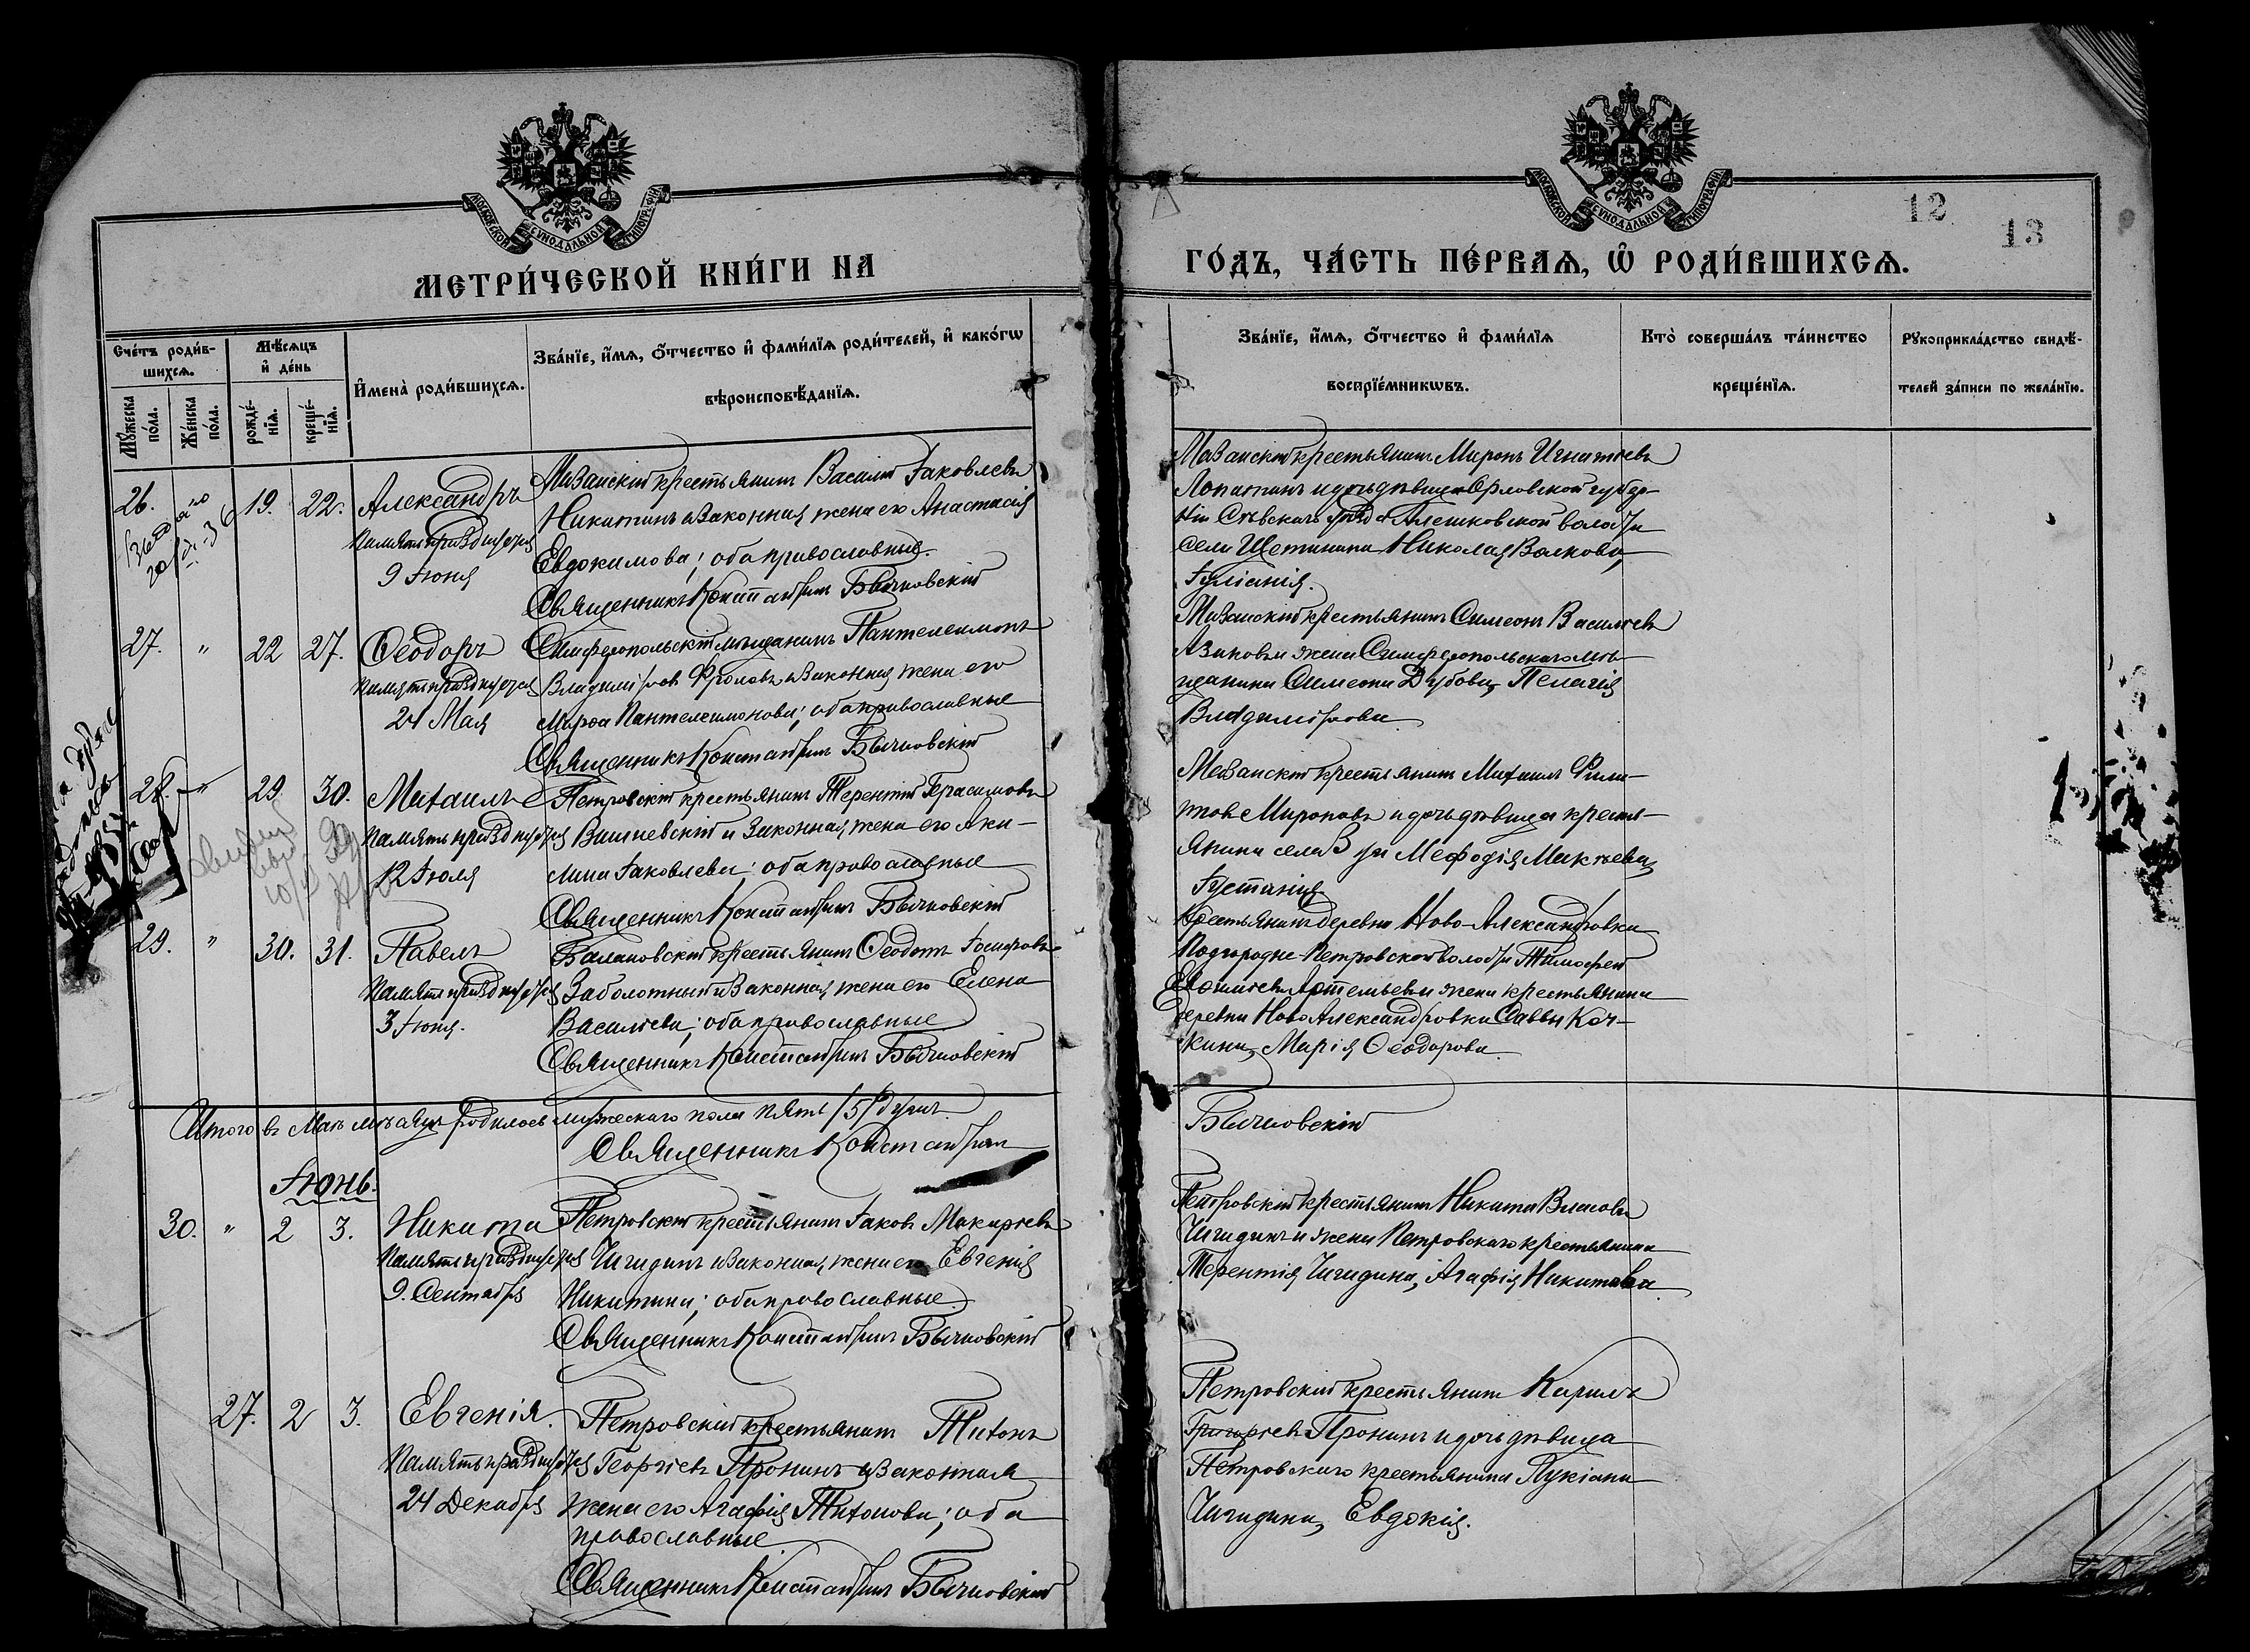 МОСКОВСКОЙ СѴНОДАЛЬНОЙ ТИПОГРАФІИ
МОСКОВСКОЙ СѴНОДАЛЬНОЙ ТИПОГРАФІИ
12
13
МЕТРИ́ЧЕСКОЙ КНИ́ГИ НА
ГО́ДЪ, ЧА́СТЬ ПЕ́РВАѦ, Ѽ РОДИ́ВШИХСѦ.
Сче́тъ роди́в-
шихсѧ.
Мѣ́сѧцъ
и҆ де́нь
И҆мена̀ роди́вшихсѧ.
Зва́нїе, и҆́мѧ, ѻ҆́тчество и҆ фами́лїѧ роди́телей, и҆ како́гѡ
вѣроисповѣ́данїѧ.
Мꙋ́жеска по́ла.
Же́нска по́ла.
рожде́-
нїѧ.
креще́-
нїѧ.
Зва́нїе, и҆́мѧ, ѻ҆́тчество и҆ фами́лїѧ
воспрїе́мникѡвъ.
Кто̀ соверша́лъ та́инство
креще́нїѧ.
Рꙋкоприкла́дство свидѣ́-
телей за́писи по жела́нїю.
26. 19. 22. Александръ
Память празднуется
9 Іюня
Мазанскій крестьянинъ Василій Іаковлевъ
Никитинъ и законная жена его Анастасія
Евдокимова; оба православные.
Священникъ Константинъ Бычковскій
Мазанскій крестьянинъ Миронъ Игнатіевъ
Лопатинъ и дочь дѣвица Орловской губер-
ніи Сѣвскаго уѣзда Алешковской волости
села Щетинина Николая Волкова,
Іуліанія.
27. " 22 27. Ѳеодоръ
Память празднуется
21 Мая
Симферопольскій мѣщанинъ Пантелеимонъ
Владиміровъ Фроловъ и законная жена его
Марѳа Пантелеимонова; оба православные
Священникъ Константинъ Бычковскій
Мазанскій крестьянинъ Симеонъ Василіевъ
Азановъ и жена Симферопольскаго мѣ-
щанина Симеона Дубова, Пелагія
Владимірова
28. " 29 30. Михаилъ
Память празднуется
12 Іюля
Петровскій крестьянинъ Терентій Герасимовъ
Вишневскій и законная жена его Аки-
лина Іаковлева; оба православные
Священникъ Константинъ Бычковскій
Мазанскій крестьянинъ Михаилъ Фили-
повъ Мироновъ и дочь дѣвица кресть-
янина села Зуи Меѳодія Макѣева,
Іустинія
29. " 30. 31. Павелъ
Память празднуется
3 Іюня.
Балановскій крестьянинъ Ѳеодотъ Іосифовъ
Заболотный и законная жена его Елена
Василіева; оба православные
Священникъ Константинъ Бычковскій
Крестьянинъ деревни Ново-Александровки
Подгородне-Петровской волости Тимоѳей
Артемьевъ и жена крестьянина
деревни Ново Александровки Саввы Коч-
кина, Марія Ѳеодорова
Итого въ Маѣ мѣсяцѣ родилось мужескаго пола пять /5/ душъ.
Священникъ Константинъ
Бычковскій
Іюнь.
30. " 2 3. Никита
Память празднуется
9. Сентября
Петровскій крестьянинъ Іаковъ Макаріевъ
Чигидинъ и законная жена его Евгенія
Никитина; оба православные
Священникъ Константинъ Бычковскій
Петровскій крестьянинъ Никита Власовъ
Чигидинъ и жена Петровскаго крестьянина
Терентія Чигидина, Агафія Никитова
27. 2 3. Евгенія.
Память празднуется
24 Декабря
Петровскій крестьянинъ Тихонъ
Георгіевъ Пронинъ и законная
жена его Агафія Тихонова; оба
православные
Священникъ Константинъ Бычковскій
Петровскій крестьянинъ Кирилъ
Григоріевъ Пронинъ и дочь дѣвица
Петровскаго крестьянина Лукіана
Чигидина, Евдокія.